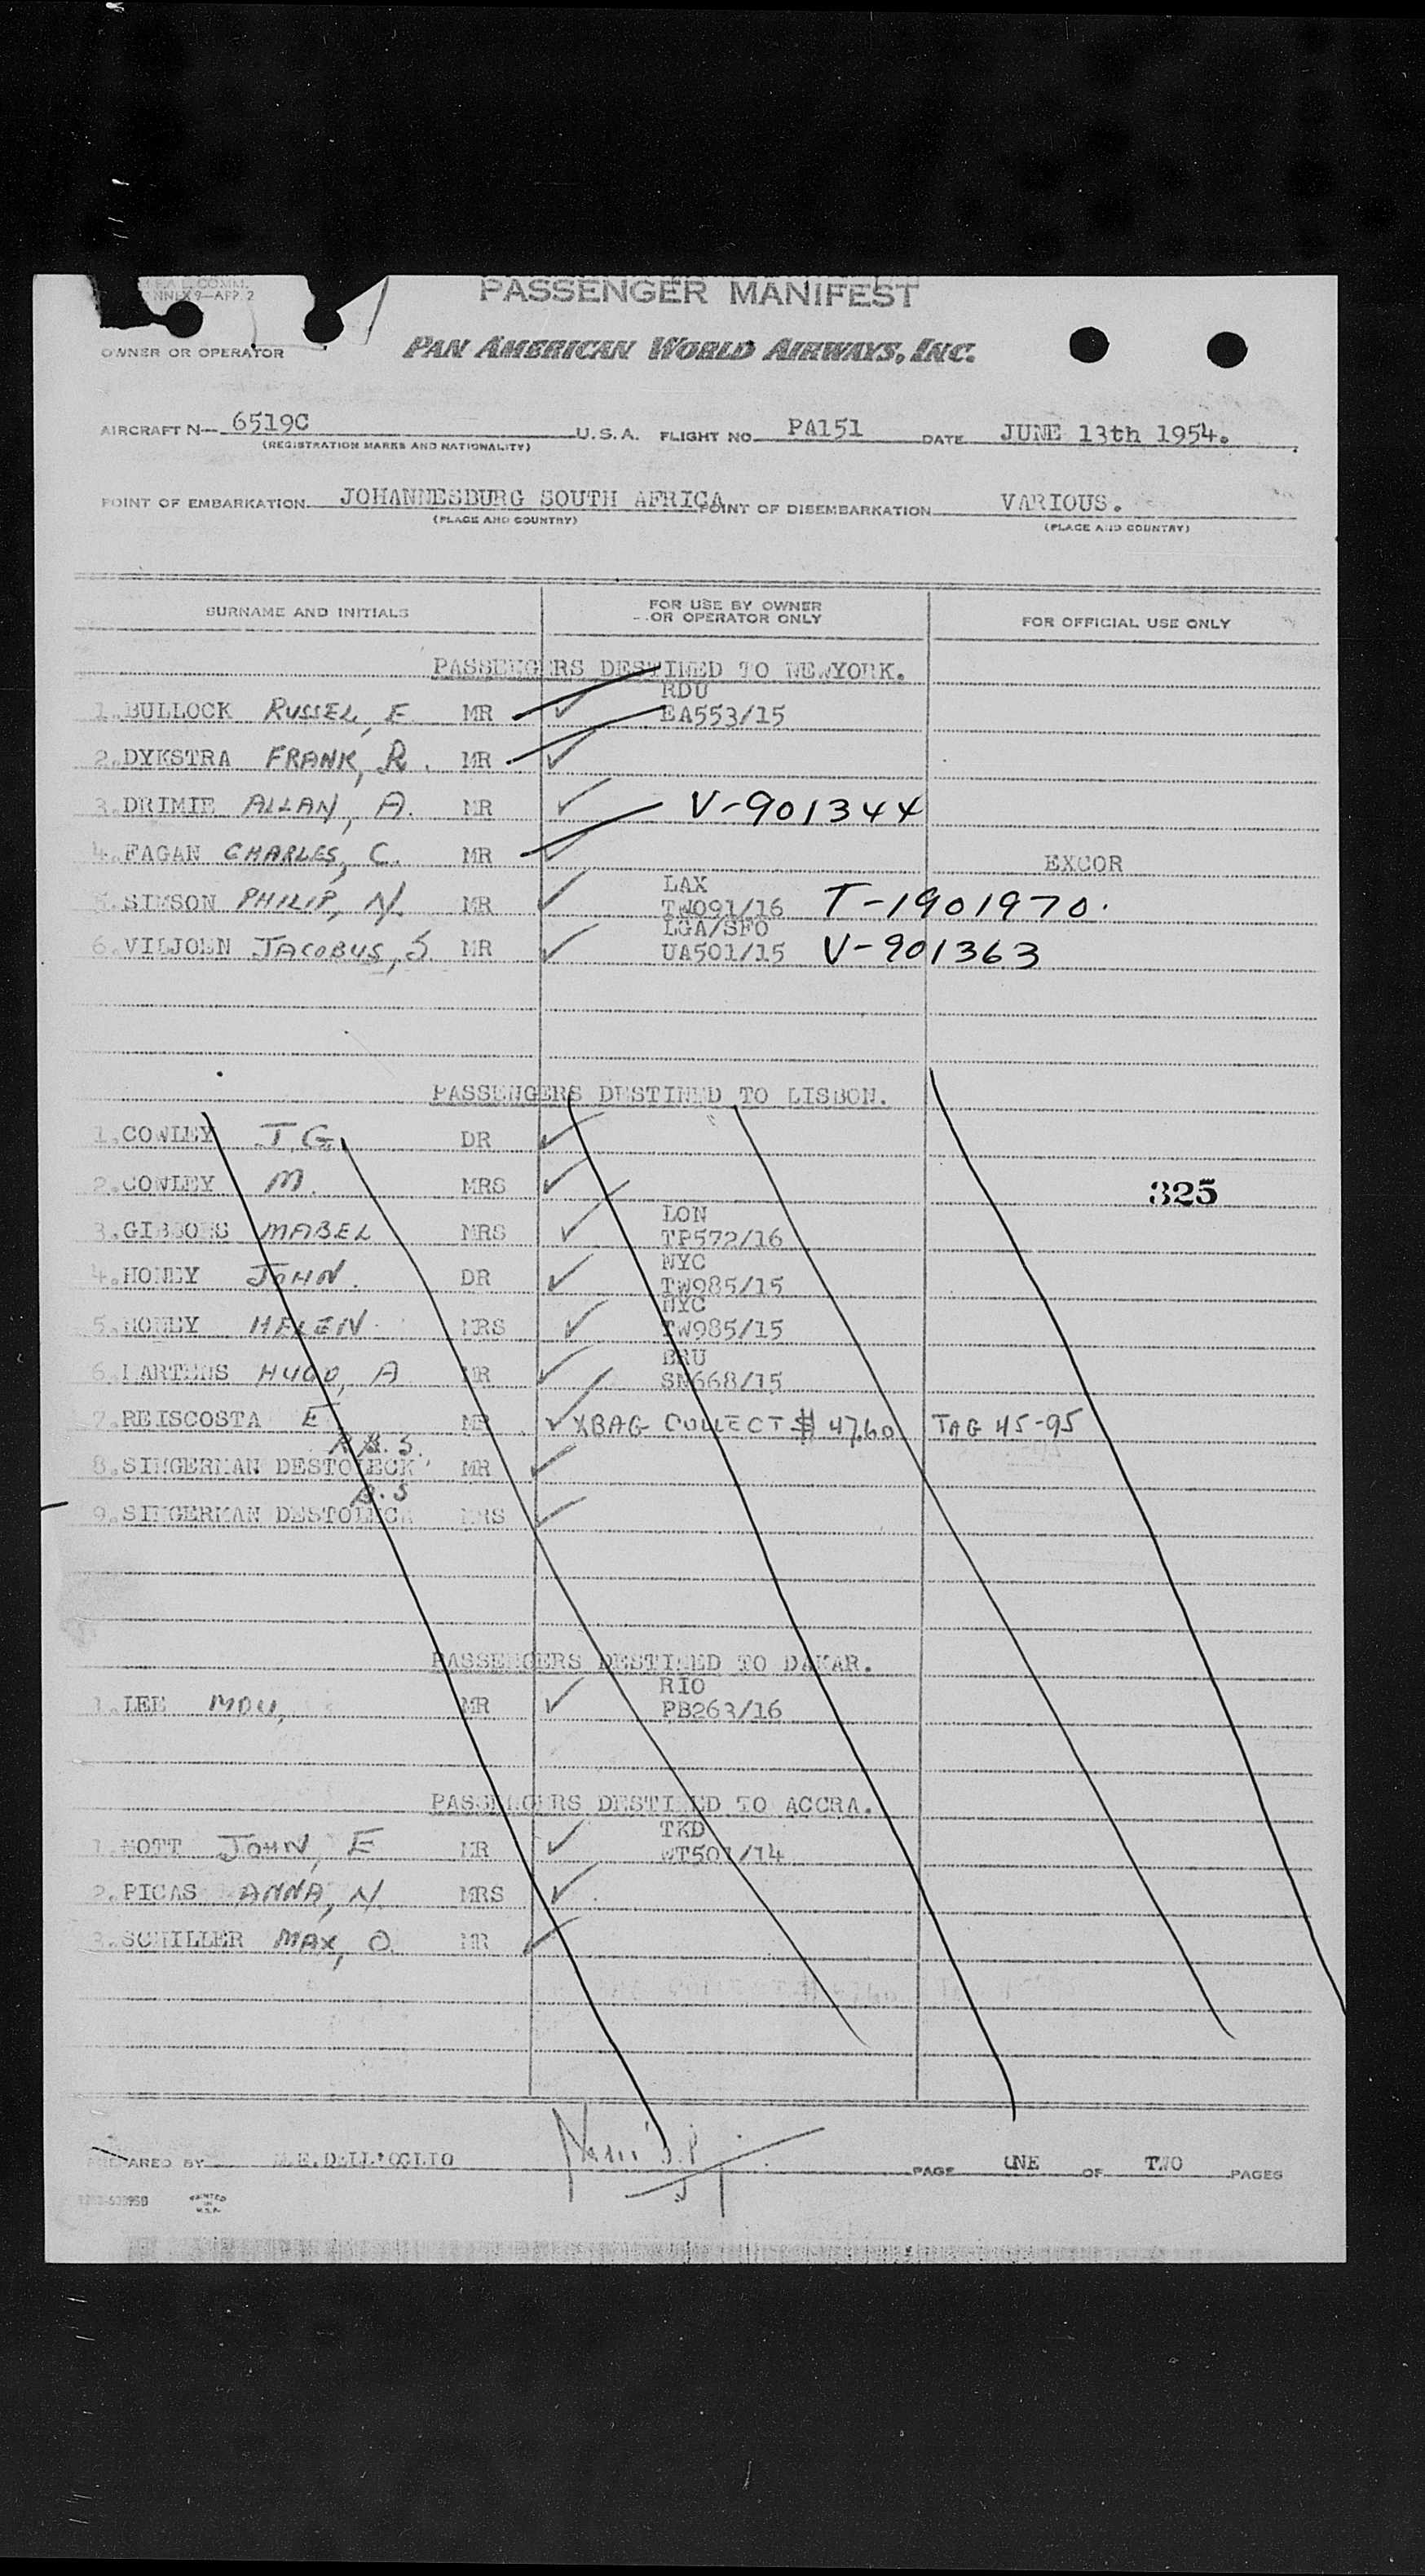 PASSENGER MANIFEST
OWNER OR OPERATOR PAN AMERICAN WORLD AIRWAYS, INC.
AIRCRAFT N— 6519C U.S.A. FLIGHT NO. PA151 DATE JUNE 13th 1954.
(REGISTRATION MARKS AND NATIONALITY)
POINT OF EMBARKATION JOHANNESBURG SOUTH AFRICA POINT OF DISEMBARKATION VARIOUS.
(PLACE AND COUNTRY) (PLACE AND COUNTRY)
SURNAME AND INITIALS FOR USE BY OWNER OR OPERATOR ONLY FOR OFFICIAL USE ONLY
PASSENGERS DESTINED TO NEWYORK.
RDU
1. BULLOCK RUSSEL, E MR EA553/15
2. DYKSTRA FRANK, R. MR
3. DRIMIE ALLAN, A. MR V-901344
4. FAGAN CHARLES, C. MR EXCOR
LAX
5. SIMSON PHILIP, N. MR TW091/16 T-1901970.
LGA/SFO
6. VILJOEN JACOBUS, S MR UA501/15 V-901363
PASSENGERS DESTINED TO LISBON.
1. COWLEY J.G. DR
2. COWLEY M. MRS
325
LON
3. GIBBONS MABEL MRS TP572/16
NYC
4. HONEY JOHN. DR TW985/15
NYC
5. HONEY HELEN MRS TW985/15
BRU
6. MARTENS HUGO, A MR SN668/15
7. REISCOSTA E MR XBAG COLLECT $ 47.60 TAG 45-95
8. SINGERMAN MR
B.S
9. SINGERMAN MRS
PASSENGERS DESTINED TO DAKAR.
RIO
1. LEE MOU, MR PB263/16
PASSENGERS DESTINED TO ACCRA.
TKD
1. MOTT JOHN, E MR WT501/14
2. PICAS ANNA, N. MRS
3. SCHILLER MAX, O. MR
PREPARED BY M.E.DELL'OGLIO PAGE ONE OF TWO PAGES
PRINTED IN U.S.A.